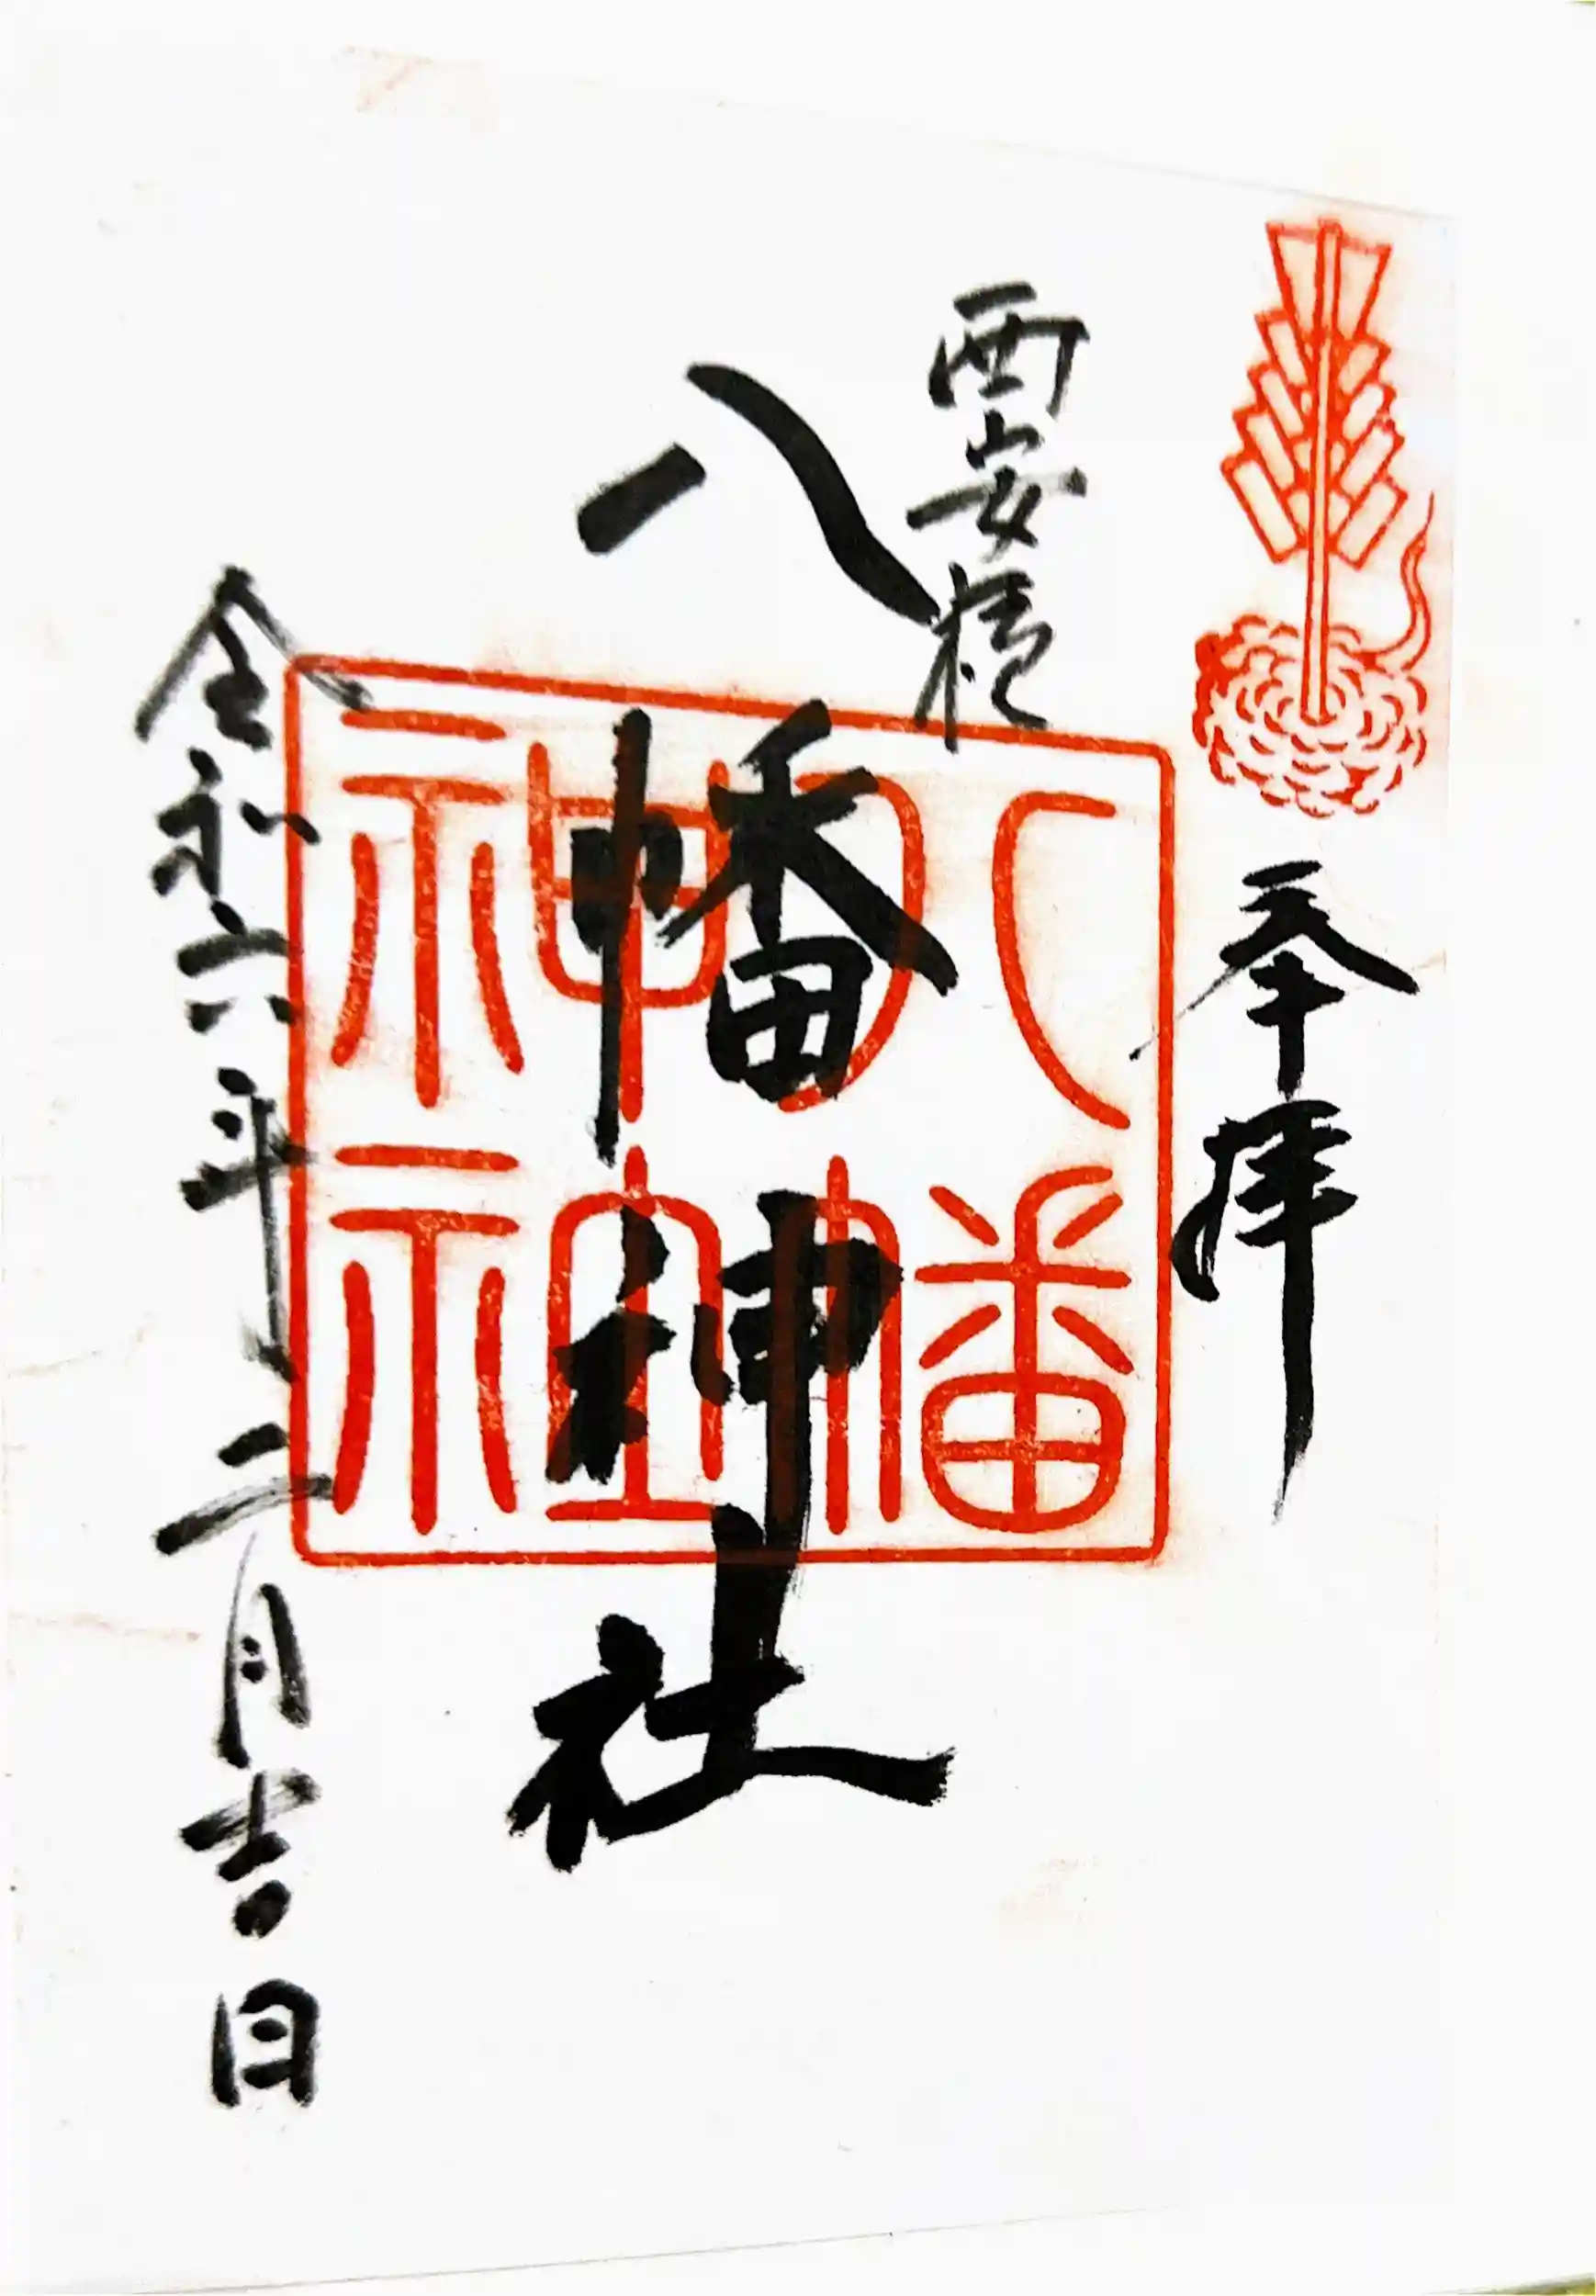 奉拝
西安積
八幡神社
八幡神社
令和六年二月吉日